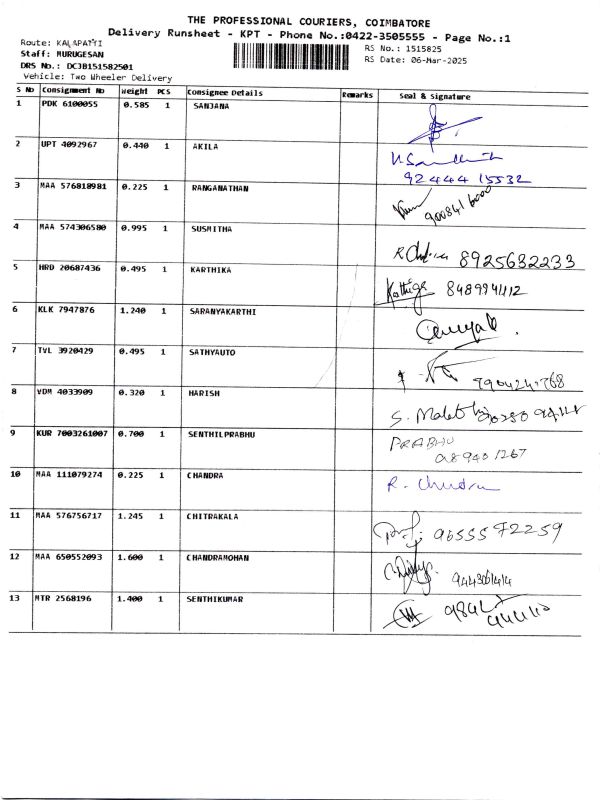 THE PROFESSIONAL COURIERS, COIMBATORE
Delivery Runsheet - KPT - Phone No.:0422-3505555 - Page No.:1
Route: KALAPATTI
RS No.: 1515825
Staff: MURUGESAN
RS Date: 06-Mar-2025
DRS No.: DCJB151582501
Vehicle: Two Wheeler Delivery
S No Consignment No Weight PCS Consignee Details Remarks Seal & Signature
1 PDK 6100055 0.585 1 SANJANA
2 UPT 4092967 0.440 1 AKILA
92444 15532
3 MAA 576818981 0.225 1 RANGANATHAN
4 MAA 574306580 0.995 1 SUSMITHA
8925632233
5 HRD 20687436 0.495 1 KARTHIKA
Karthiga
6 KLK 7947876 1.240 1 SARANYAKARTHI
7 TVL 3920429 0.495 1 SATHYAUTO
8 VDM 4033909 0.320 1 HARISH
9 KUR 7003261007 0.700 1 SENTHILPRABHU
PRABHU
10 MAA 111079274 0.225 1 CHANDRA
R. Chandra
11 MAA 576756717 1.245 1 CHITRAKALA
96555 72259
12 MAA 650552093 1.600 1 CHANDRAMOHAN
13 MTR 2568196 1.400 1 SENTHIKUMAR